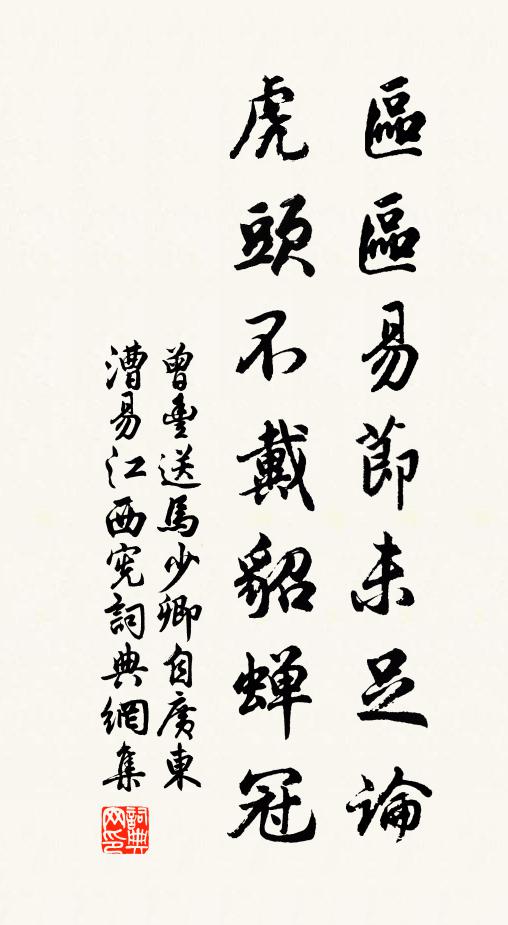 區區易節未足論
虎頭不戴貂蟬冠
曾豐送馬少卿自廣東
漕易江西宪詞典網集
詞典网印